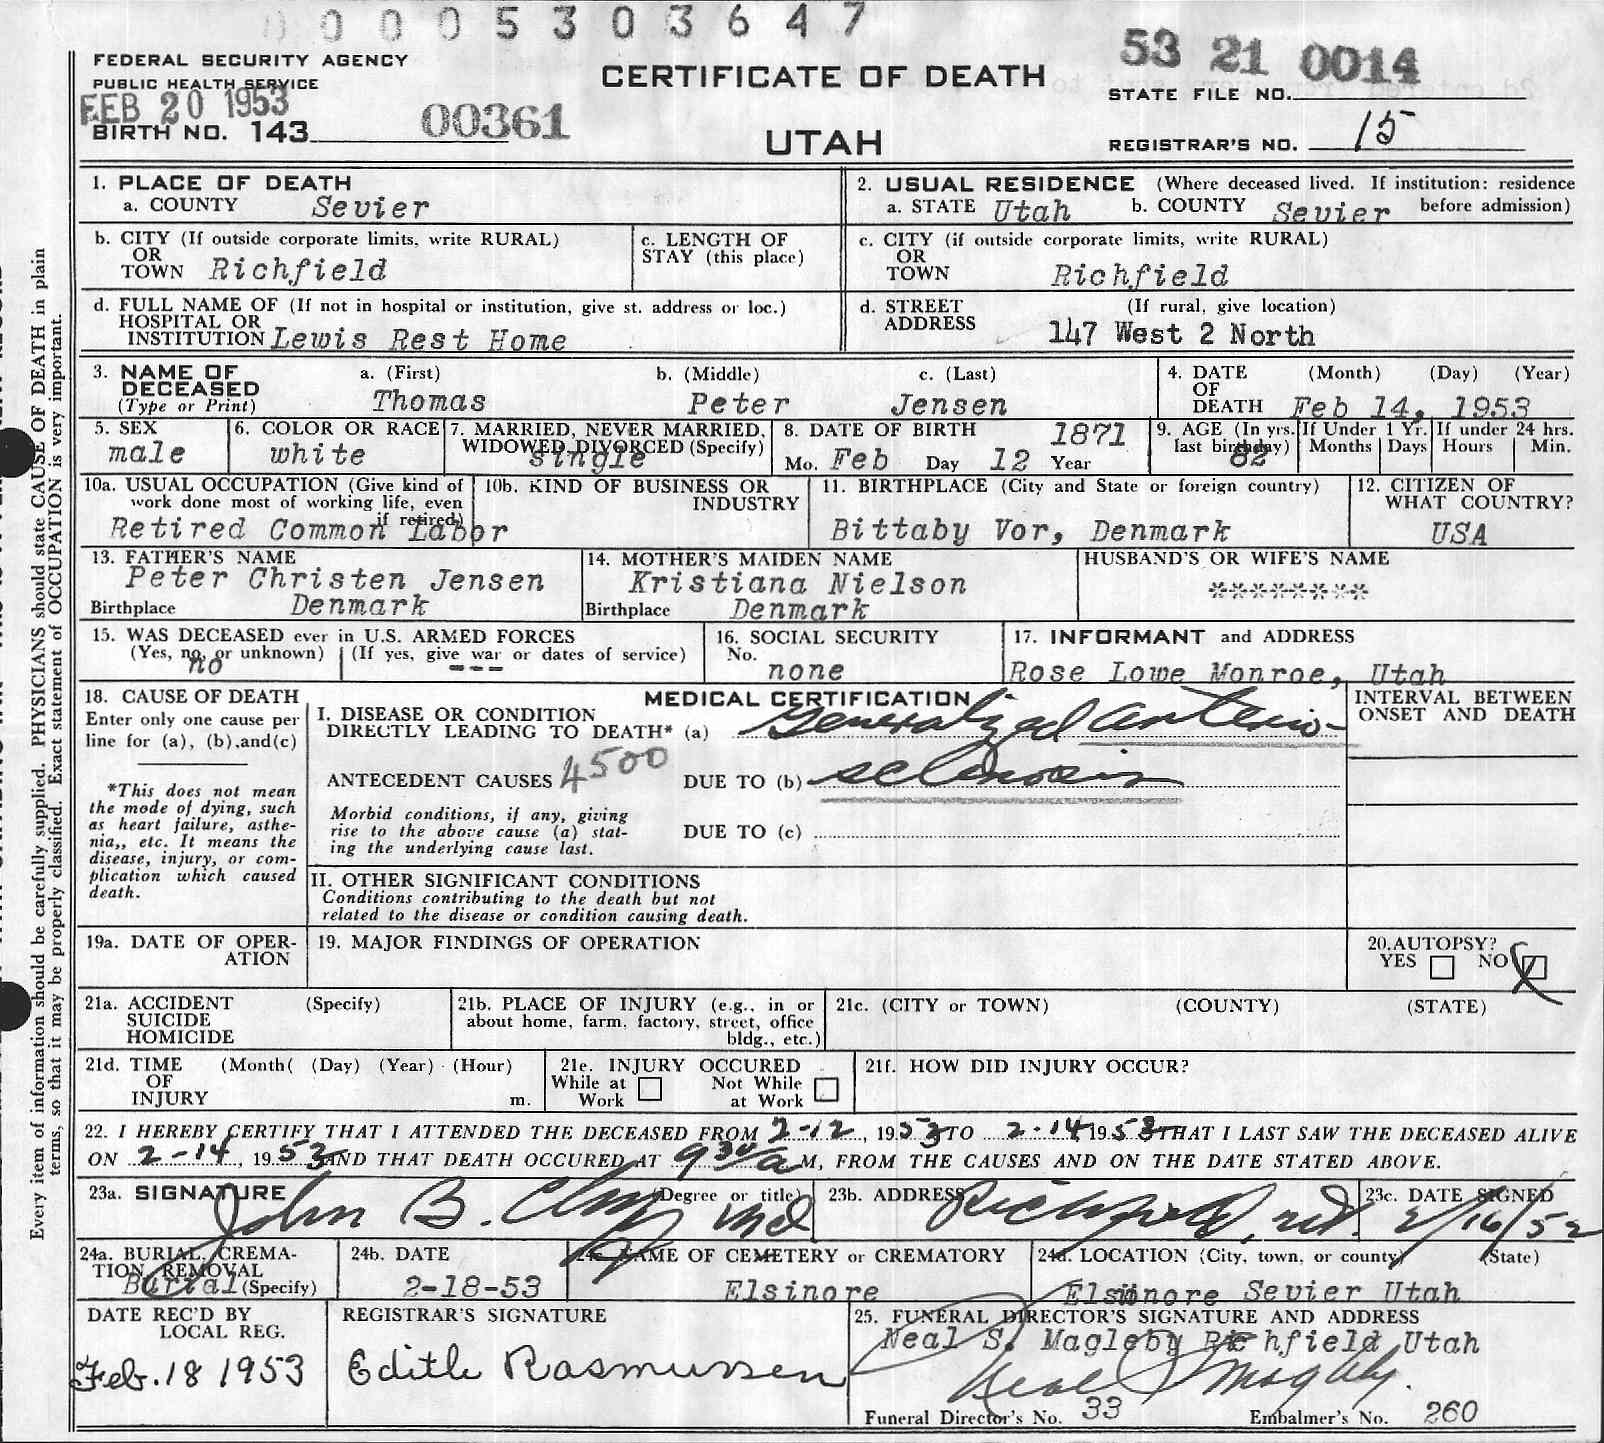 0005303647
FEDERAL SECURITY AGENCY
PUBLIC HEALTH SERVICE
FEB 20 1953
BIRTH NO. 143 00361
CERTIFICATE OF DEATH
UTAH
53 21 0014
STATE FILE NO.
REGISTRAR'S NO. 15
Every item of information should be carefully supplied. PHYSICIANS should state CAUSE OF DEATH in plain
terms, so that it may be properly classified. Exact statement of OCCUPATION is very important.
1. PLACE OF DEATH
a. COUNTY Sevier
2. USUAL RESIDENCE (Where deceased lived. If institution: residence
a. STATE Utah b. COUNTY Sevier before admission)
b. CITY (If outside corporate limits, write RURAL)
OR
TOWN Richfield
c. LENGTH OF
STAY (this place)
c. CITY (if outside corporate limits, write RURAL)
OR
TOWN Richfield
d. FULL NAME OF (If not in hospital or institution, give st. address or loc.)
HOSPITAL OR
INSTITUTION Lewis Rest Home
d. STREET (If rural, give location)
ADDRESS 147 West 2 North
3. NAME OF a. (First) b. (Middle) c. (Last)
DECEASED
(Type or Print) Thomas Peter Jensen
4. DATE (Month) (Day) (Year)
OF
DEATH Feb 14, 1953
5. SEX
male
6. COLOR OR RACE
white
7. MARRIED, NEVER MARRIED,
WIDOWED, DIVORCED (Specify)
single
8. DATE OF BIRTH 1871
Mo. Feb Day 12 Year
9. AGE (In yrs. If Under 1 Yr. If under 24 hrs.
last birthday) Months Days Hours Min.
82
10a. USUAL OCCUPATION (Give kind of
work done most of working life, even
if retired)
Retired Common Labor
10b. KIND OF BUSINESS OR
INDUSTRY
11. BIRTHPLACE (City and State or foreign country)
Bittaby Vor, Denmark
12. CITIZEN OF
WHAT COUNTRY?
USA
13. FATHER'S NAME
Peter Christen Jensen
Birthplace Denmark
14. MOTHER'S MAIDEN NAME
Kristiana Nielson
Birthplace Denmark
HUSBAND'S OR WIFE'S NAME
********
15. WAS DECEASED ever in U.S. ARMED FORCES
(Yes, no, or unknown) (If yes, give war or dates of service)
no ---
16. SOCIAL SECURITY
No.
none
17. INFORMANT and ADDRESS
Rose Lowe Monroe, Utah
18. CAUSE OF DEATH
Enter only one cause per
line for (a), (b), and(c)
*This does not mean
the mode of dying, such
as heart failure, asthe-
nia,, etc. It means the
disease, injury, or com-
plication which caused
death.
MEDICAL CERTIFICATION
I. DISEASE OR CONDITION
DIRECTLY LEADING TO DEATH* (a) Generalized arterio-
ANTECEDENT CAUSES 4500 DUE TO (b) sclerosis
Morbid conditions, if any, giving
rise to the above cause (a) stat-
ing the underlying cause last.
DUE TO (c)
INTERVAL BETWEEN
ONSET AND DEATH
II. OTHER SIGNIFICANT CONDITIONS
Conditions contributing to the death but not
related to the disease or condition causing death.
19a. DATE OF OPER-
ATION
19. MAJOR FINDINGS OF OPERATION
20. AUTOPSY?
YES NO X
21a. ACCIDENT (Specify)
SUICIDE
HOMICIDE
21b. PLACE OF INJURY (e.g., in or
about home, farm, factory, street, office
bldg., etc.)
21c. (CITY or TOWN) (COUNTY) (STATE)
21d. TIME (Month( (Day) (Year) (Hour)
OF
INJURY m.
21e. INJURY OCCURED
While at Not While
Work at Work
21f. HOW DID INJURY OCCUR?
22. I HEREBY CERTIFY THAT I ATTENDED THE DECEASED FROM 2-12, 1953 TO 2-14 1953 THAT I LAST SAW THE DECEASED ALIVE
ON 2-14, 1953 AND THAT DEATH OCCURED AT 9 30/a M, FROM THE CAUSES AND ON THE DATE STATED ABOVE.
23a. SIGNATURE (Degree or title)
John B. MD
23b. ADDRESS
Richfield, Ut.
23c. DATE SIGNED
2/16/52
24a. BURIAL, CREMA-
TION, REMOVAL
Burial (Specify)
24b. DATE
2-18-53
24c. NAME OF CEMETERY or CREMATORY
Elsinore
24d. LOCATION (City, town, or county) (State)
Elsinore Sevier Utah
DATE REC'D BY
LOCAL REG.
Feb. 18 1953
REGISTRAR'S SIGNATURE
Edith Rasmussen
25. FUNERAL DIRECTOR'S SIGNATURE AND ADDRESS
Neal S. Magleby Richfield Utah
Neal S Magleby.
Funeral Director's No. 33 Embalmer's No. 260